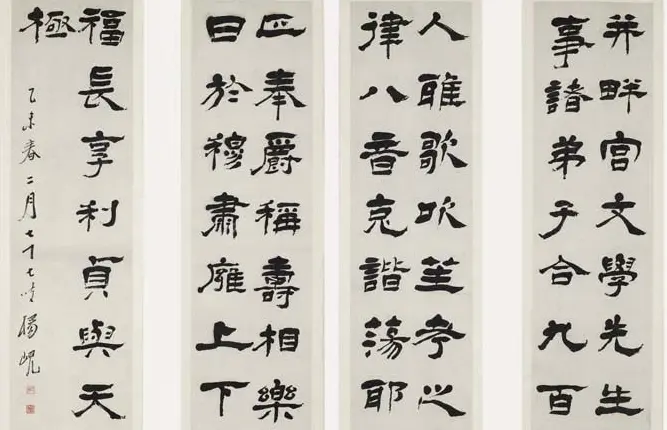 并畔宮文學先生
事諸弟子合九百
人雅歌吹笙考之
律八音克諧蕩耶
正奉爵稱壽相樂
日於穆肅廱上下
福長享利貞與天
極
乙未春二月七十七叟楊峴